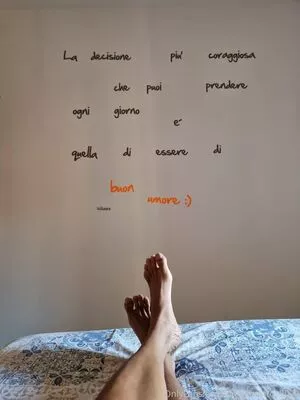 La decisione piu' coraggiosa
che puoi prendere
ogni giorno e'
quella di essere di
buon umore :)
Voltaire